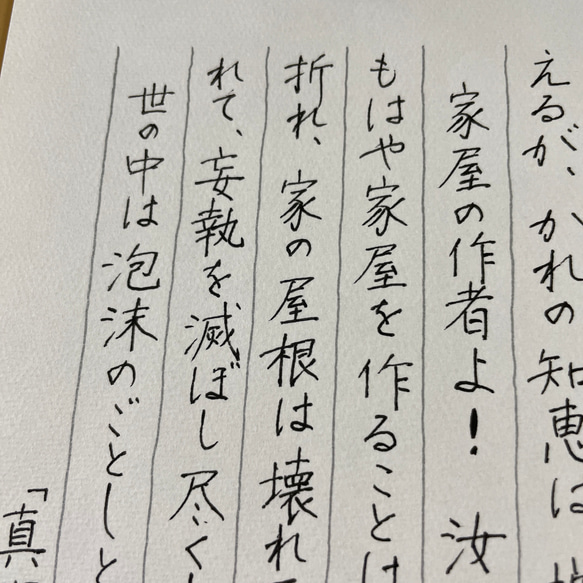 えるが、かれの知恵は
家屋の作者よ！　汝
もはや家屋を作ることは
折れ、家の屋根は壊れ
れて、妄執を滅ぼし尽くし
世の中は泡沫のごとしと
「真